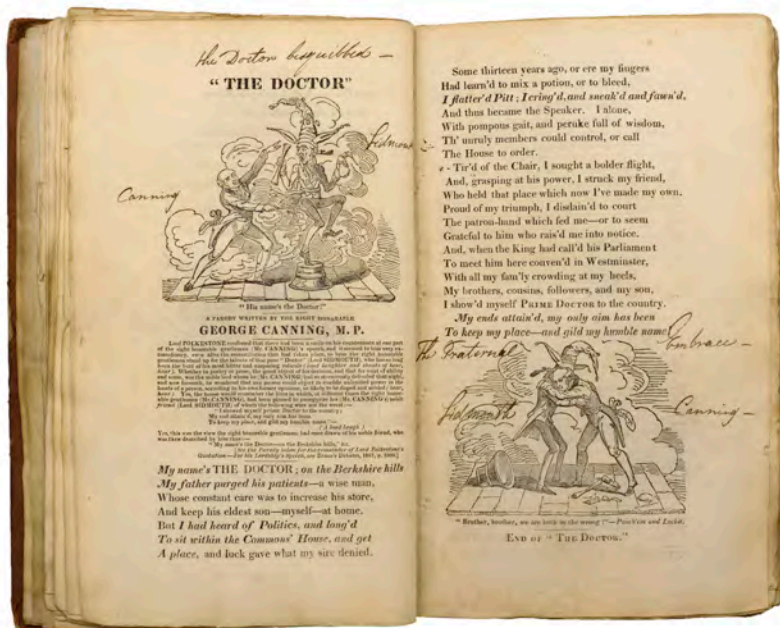 the Doctor besquibbed –
"THE DOCTOR"
Sidmouth
Canning
"His name's the Doctor!"
A PARODY WRITTEN BY THE RIGHT HONORABLE
GEORGE CANNING, M. P.
"I showed myself prime Doctor to the country;
My end attain'd, my only aim has been
To keep my place, and gild my humble name."—
(A loud laugh.)
My name's THE DOCTOR; on the Berkshire hills
My father purged his patients—a wise man,
Whose constant care was to increase his store,
And keep his eldest son—myself—at home.
But I had heard of Politics, and long'd
To sit within the Commons' House, and get
A place, and luck gave what my sire denied.
Some thirteen years ago, or ere my fingers
Had learn'd to mix a potion, or to bleed,
I flatter'd Pitt; I cring'd, and sneak'd and fawn'd,
And thus became the Speaker. I alone,
With pompous gait, and peruke full of wisdom,
Th' unruly members could control, or call
The House to order.
Tir'd of the Chair, I sought a bolder flight,
And, grasping at his power, I struck my friend,
Who held that place which now I've made my own.
Proud of my triumph, I disdain'd to court
The patron-hand which fed me—or to seem
Grateful to him who rais'd me into notice.
And, when the King had call'd his Parliament
To meet him here conven'd in Westminster,
With all my fam'ly crowding at my heels,
My brothers, cousins, followers, and my son,
I show'd myself PRIME DOCTOR to the country.
My ends attain'd, my only aim has been
To keep my place—and gild my humble name!
The Fraternal Embrace –
Sidmouth
Canning –
"Brother, brother, we are both in the wrong!"—Peachum and Lockit.
END OF "THE DOCTOR."